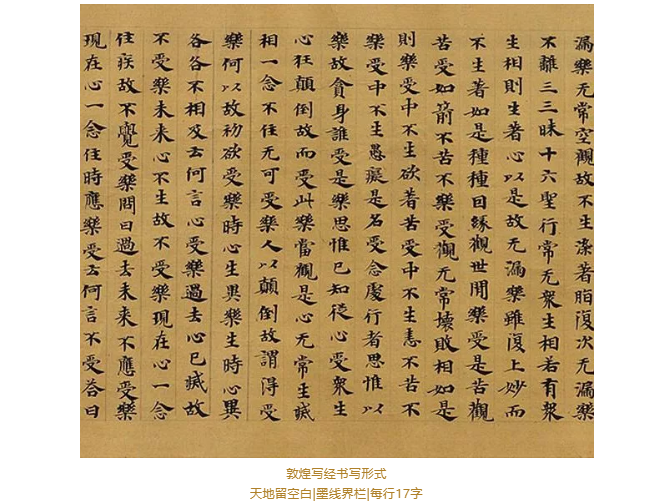 漏樂无常空觀故不生染著脂復次无漏樂
不離三三昧十六聖行常无衆生相若有衆
生相則生著心以是故无漏樂雖復上妙而
不生著如是種種因緣觀世間樂受是苦觀
苦受如箭不苦不樂受觀无常壞敗相如是
則樂受中不生欲著苦受中不生恚不苦不
樂受中不生愚癡是名受念處行者思惟以
樂故貪身誰受是樂思惟已知從心受衆生
心狂顛倒故而受此樂當觀是心无常生滅
相一念不住无可受樂人以顛倒故謂得受
樂何以故初欲受樂時心生異樂生時心異
各各不相及云何言心受樂過去心已滅故
不受樂未來心不生故不受樂現在心一念
往疾故不覺受樂問曰過去未來不應受樂
現在心一念住時應樂受云何言不受答曰
敦煌写经书写形式
天地留空白|墨线界栏|每行17字